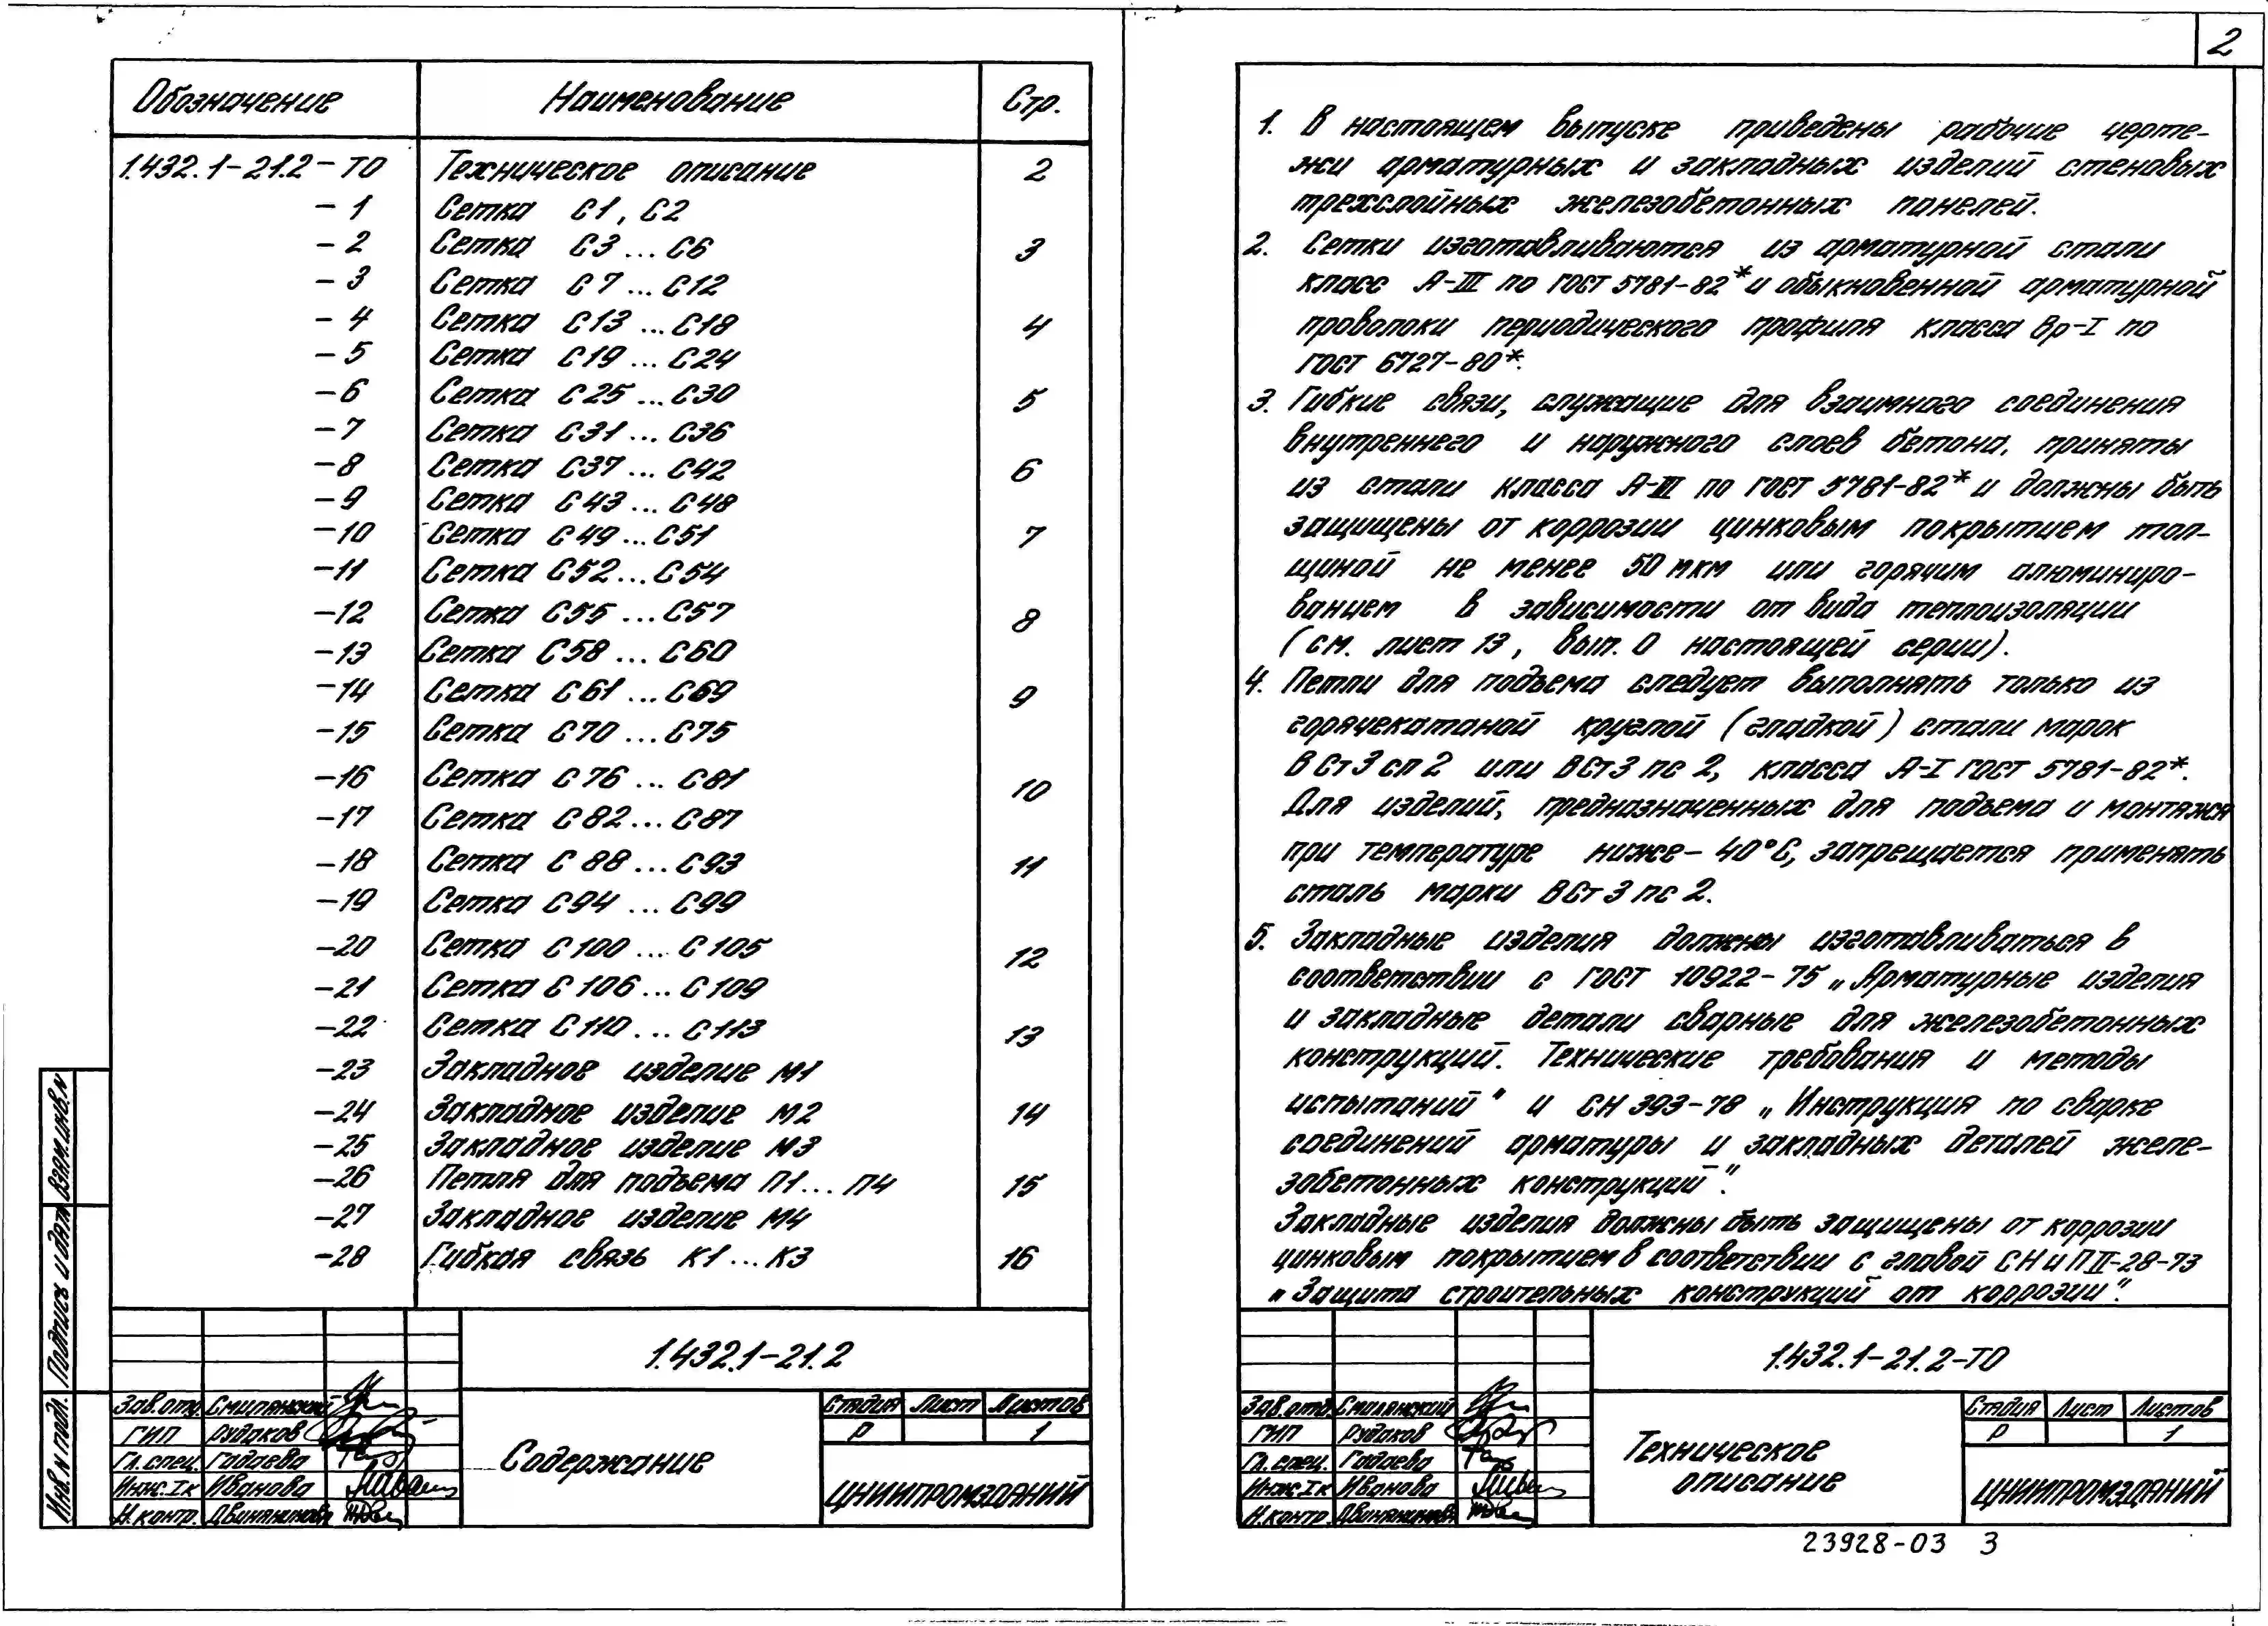 Обозначение Наименование Стр.
1.432.1-21.2-ТО Техническое описание 2
-1 Сетка С1, С2
-2 Сетка С3...С6 3
-3 Сетка С7...С12
-4 Сетка С13...С18 4
-5 Сетка С19...С24
-6 Сетка С25...С30 5
-7 Сетка С31...С36
-8 Сетка С37...С42 6
-9 Сетка С43...С48
-10 Сетка С49...С51 7
-11 Сетка С52...С54
-12 Сетка С55...С57 8
-13 Сетка С58...С60
-14 Сетка С61...С69 9
-15 Сетка С70...С75
-16 Сетка С76...С81 10
-17 Сетка С82...С87
-18 Сетка С88...С93 11
-19 Сетка С94...С99
-20 Сетка С100...С105 12
-21 Сетка С106...С109
-22 Сетка С110...С113 13
-23 Закладное изделие М1
-24 Закладное изделие М2 14
-25 Закладное изделие М3
-26 Петля для подъема П1...П4 15
-27 Закладное изделие М4
-28 Гибкая связь К1...К3 16
Взам.инв.N
Подпись и дата
Инв.N подл.
1.432.1-21.2
Зав.отд. Смилянский
ГИП Рудаков
Гл.спец. Гадаева
Инж.Iк Иванова
Н.контр.
Содержание
Стадия Лист Листов
Р 1
ЦНИИПРОМЗДАНИЙ
2
1. В настоящем выпуске приведены рабочие черте-
жи арматурных и закладных изделий стеновых
трехслойных железобетонных панелей.
2. Сетки изготавливаются из арматурной стали
класс А-III по ГОСТ 5781-82* и обыкновенной арматурной
проволоки периодического профиля класса Вр-I по
ГОСТ 6727-80*.
3. Гибкие связи, служащие для взаимного соединения
внутреннего и наружного слоев бетона, приняты
из стали класса А-III по ГОСТ 5781-82* и должны быть
защищены от коррозии цинковым покрытием тол-
щиной не менее 50 мкм или горячим алюминиро-
ванием в зависимости от вида теплоизоляции
(см. лист 13, вып. 0 настоящей серии).
4. Петли для подъема следует выполнять только из
горячекатаной круглой (гладкой) стали марок
ВСт3сп2 или ВСт3пс2, класса А-I ГОСТ 5781-82*.
Для изделий, предназначенных для подъема и монтажа
при температуре ниже -40°С, запрещается применять
сталь марки ВСт3пс2.
5. Закладные изделия должны изготавливаться в
соответствии с ГОСТ 10922-75 „Арматурные изделия
и закладные детали сварные для железобетонных
конструкций. Технические требования и методы
испытаний" и СН 393-78 „Инструкция по сварке
соединений арматуры и закладных деталей желе-
зобетонных конструкций".
Закладные изделия должны быть защищены от коррозии
цинковым покрытием в соответствии с главой СНиП II-28-73
„Защита строительных конструкций от коррозии".
1.432.1-21.2-ТО
Зав.отд. Смилянский
ГИП Рудаков
Гл.спец. Гадаева
Инж.Iк Иванова
Н.контр.
Техническое
описание
Стадия Лист Листов
Р 1
ЦНИИПРОМЗДАНИЙ
23928-03 3